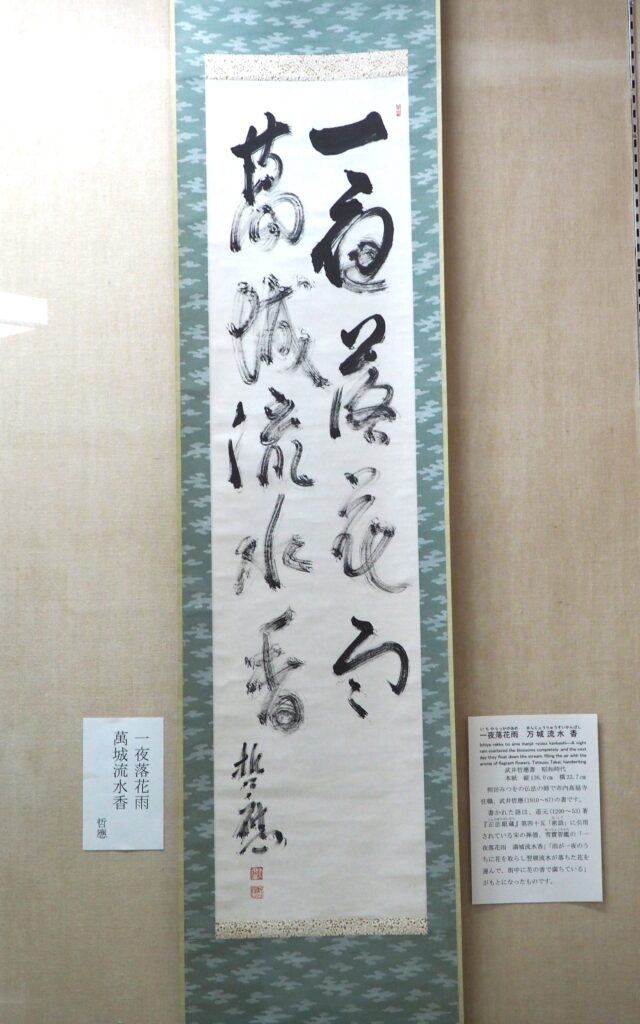 一夜落花雨
萬城流水香
哲應
一夜落花雨
萬城流水香
哲應
いちやらっかのあめ まんじょうりゅうすいかんばし
一夜落花雨 万城流水香
Ichiya rakka no ame manjō ryūsui kanbashi—A night
rain scattered the blossoms completely ,and the next
day they float down the stream, filling the air with the
aroma of flagrant flowers. Tetsuou Takei, handwriting
武井哲應書 昭和時代
本紙 縦136.0㎝ 横33.7㎝
相田みつをの仏法の師で市内高福寺
住職、武井哲應(1910~87)の書です。
書かれた語は、道元(1200~53)著
『正法眼蔵』第四十五「密語」に引用
されている宋の禅僧、雪竇智鑑の「一
夜落花雨 満城流水香」「雨が一夜のう
ちに花を散らし翌朝流水が落ちた花を
運んで、街中に花の香で満ちている」
がもとになったものです。